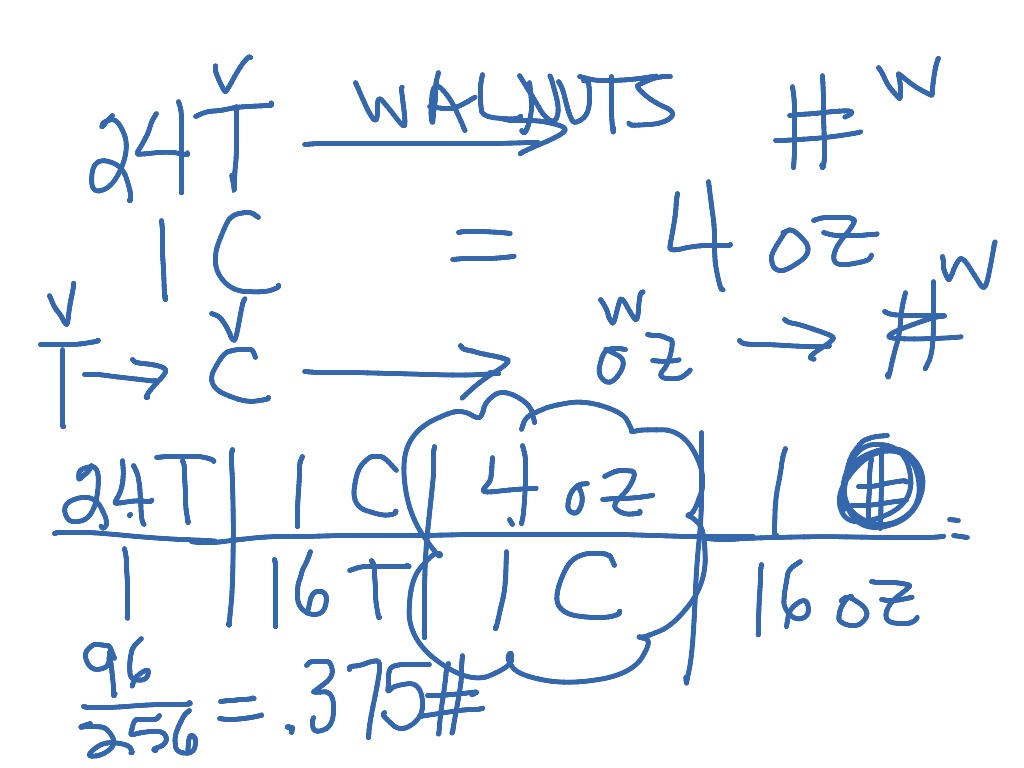 V W
24T WALNUTS #
1 C = 4 oz
V V W W
T → C → oz → #
24T | 1 C | 4 oz | 1 # =
1 | 16 T | 1 C | 16 oz
96
256 = .375#